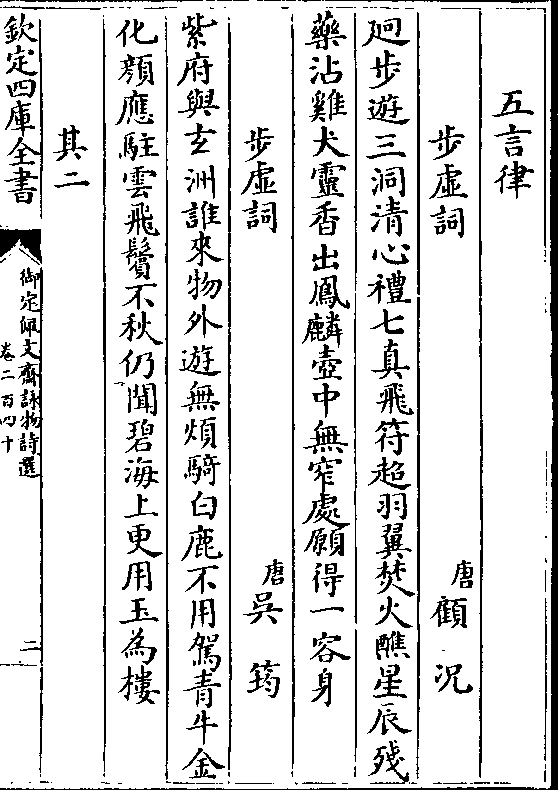 五言律
步虛詞　唐 顧況
廻步遊三洞清心禮七真飛符超羽翼焚火醮星辰殘
藥沾雞犬靈香出鳳麟壺中無窄處願得一容身
步虛詞　唐 吳筠
紫府與玄洲誰來物外遊無煩騎白鹿不用駕青牛金
化顏應駐雲飛鬢不秋仍聞碧海上更用玉為樓
其二
欽定四庫全書
御定佩文齋詠物詩選
卷二百四十
二